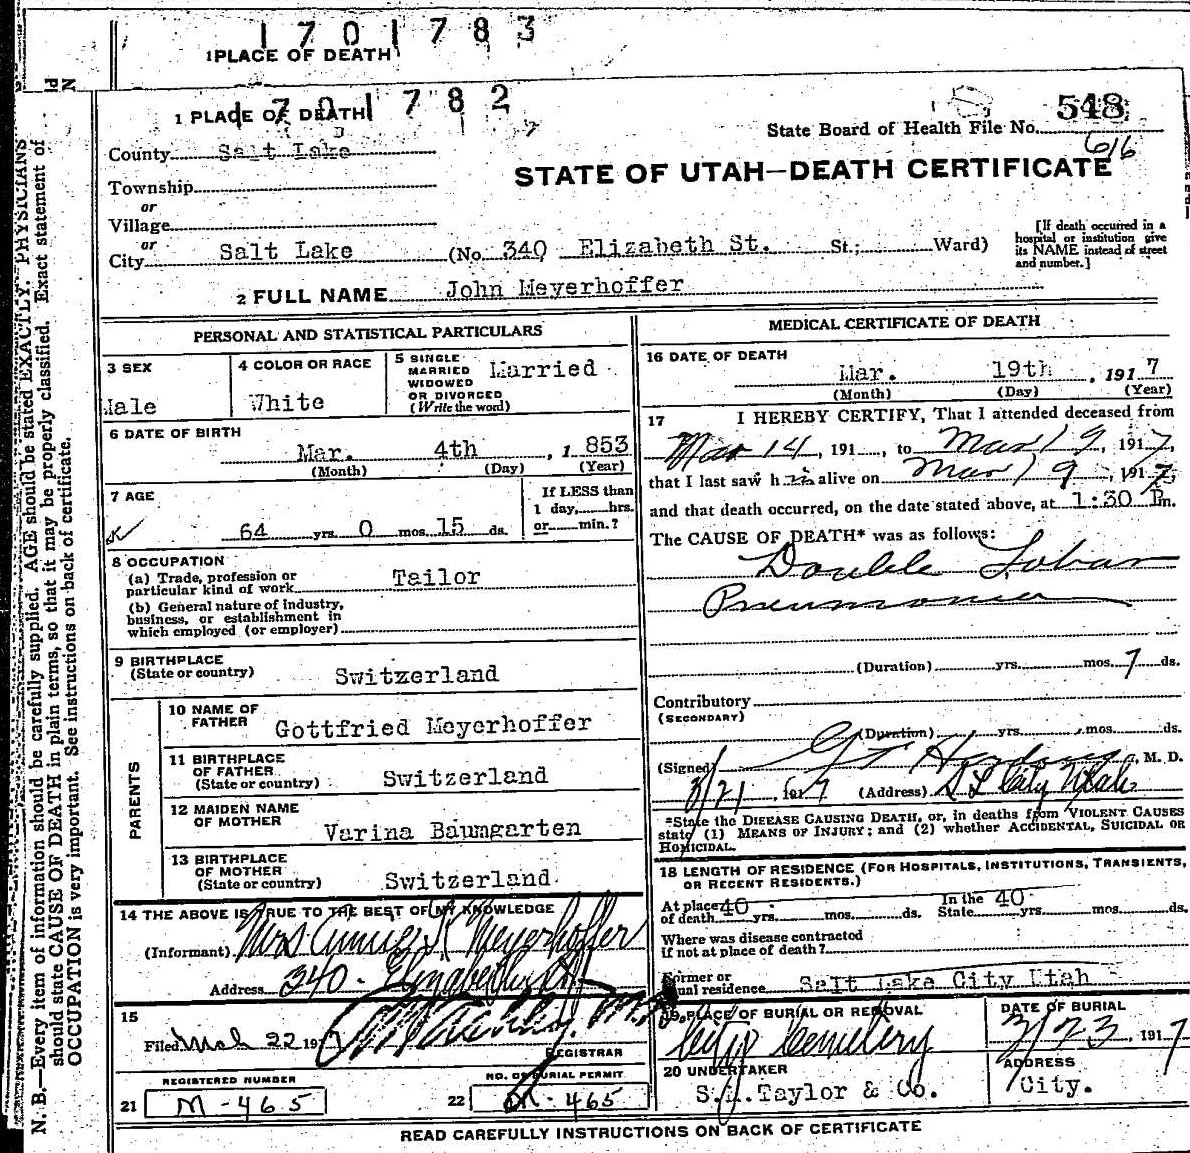 1701783
1 PLACE OF DEATH
1701782
1 PLACE OF DEATH
548
State Board of Health File No.
616
County Salt Lake
STATE OF UTAH—DEATH CERTIFICATE
Township
or
Village
or
City Salt Lake (No. 340 Elizabeth St. St.; Ward)
[If death occurred in a
hospital or institution give
its NAME instead of street
and number.]
2 FULL NAME John Meyerhoffer
PERSONAL AND STATISTICAL PARTICULARS
3 SEX
Male
4 COLOR OR RACE
White
5 SINGLE
MARRIED
WIDOWED
OR DIVORCED
(Write the word)
Married
6 DATE OF BIRTH
Mar. 4th, 1853
(Month) (Day) (Year)
7 AGE
64 yrs. 0 mos. 15 ds.
If LESS than
1 day, hrs.
or min.?
8 OCCUPATION
(a) Trade, profession or
particular kind of work Tailor
(b) General nature of industry,
business, or establishment in
which employed (or employer)
9 BIRTHPLACE
(State or country) Switzerland
PARENTS
10 NAME OF
FATHER Gottfried Meyerhoffer
11 BIRTHPLACE
OF FATHER
(State or country) Switzerland
12 MAIDEN NAME
OF MOTHER Varina Baumgarten
13 BIRTHPLACE
OF MOTHER
(State or country) Switzerland.
14 THE ABOVE IS TRUE TO THE BEST OF MY KNOWLEDGE
(Informant) Mrs Meyerhoffer
Address 340 - Elizabeth St
15
Filed Mch 22 1917
REGISTRAR
REGISTERED NUMBER
21 M-465
NO. OF BURIAL PERMIT
22 M-465
MEDICAL CERTIFICATE OF DEATH
16 DATE OF DEATH
Mar. 19th, 1917
(Month) (Day) (Year)
17 I HEREBY CERTIFY, That I attended deceased from
Mar 14, 191 , to Mar 19, 1917,
that I last saw him alive on Mar 19, 1917,
and that death occurred, on the date stated above, at 1:30 Pm.
The CAUSE OF DEATH* was as follows:
Double Lobar
Pneumonia
(Duration) yrs. mos. 7 ds.
Contributory
(SECONDARY)
(Duration) yrs. mos. ds.
(Signed) M. D.
3/21, 1917 (Address) S L City Utah
*State the DISEASE CAUSING DEATH, or, in deaths from VIOLENT CAUSES
state (1) MEANS OF INJURY; and (2) whether ACCIDENTAL, SUICIDAL OR
HOMICIDAL.
18 LENGTH OF RESIDENCE (FOR HOSPITALS, INSTITUTIONS, TRANSIENTS,
OR RECENT RESIDENTS.)
At place
of death 40 yrs. mos. ds.
In the
State 40 yrs. mos. ds.
Where was disease contracted
if not at place of death?
Former or
usual residence Salt Lake City Utah
19 PLACE OF BURIAL OR REMOVAL
City Cemetery
DATE OF BURIAL
3/23, 1917
20 UNDERTAKER
S.M. Taylor & Co.
ADDRESS
City.
READ CAREFULLY INSTRUCTIONS ON BACK OF CERTIFICATE
N. B.—Every item of information should be carefully supplied. AGE should be stated EXACTLY. PHYSICIANS
should state CAUSE OF DEATH in plain terms, so that it may be properly classified. Exact statement of
OCCUPATION is very important. See instructions on back of certificate.